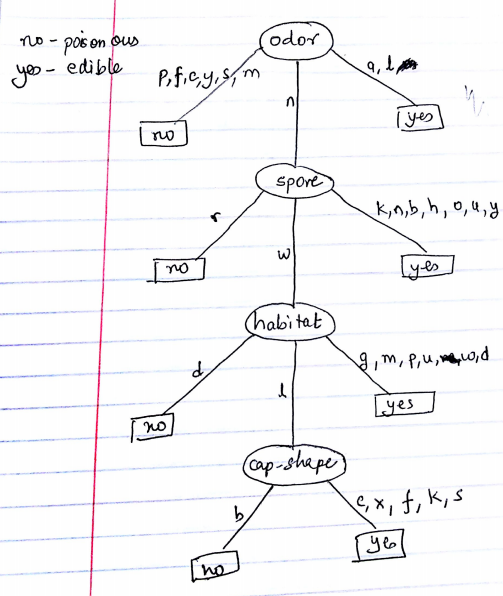 no - poisonous
yes - edible
odor
p,f,c,y,s,m
n
a,l
no
yes
spore
r
w
k,n,b,h,o,u,y
no
yes
habitat
d
l
g,m,p,u,w,d
no
yes
cap-shape
b
c,x,f,k,s
no
yes